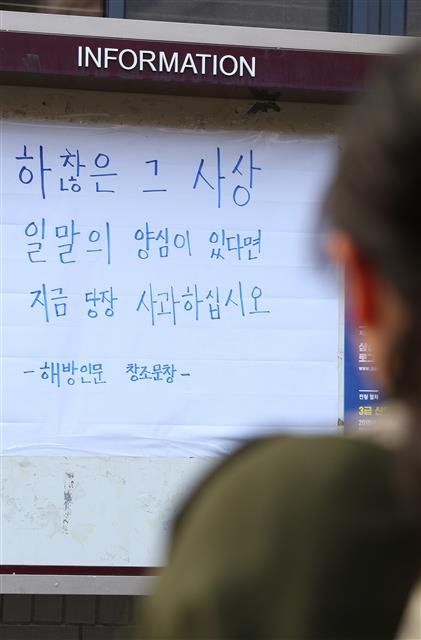 INFORMATION
하찮은 그 사상
일말의 양심이 있다면
지금 당장 사과하십시오
- 해방인문 창조문창 -